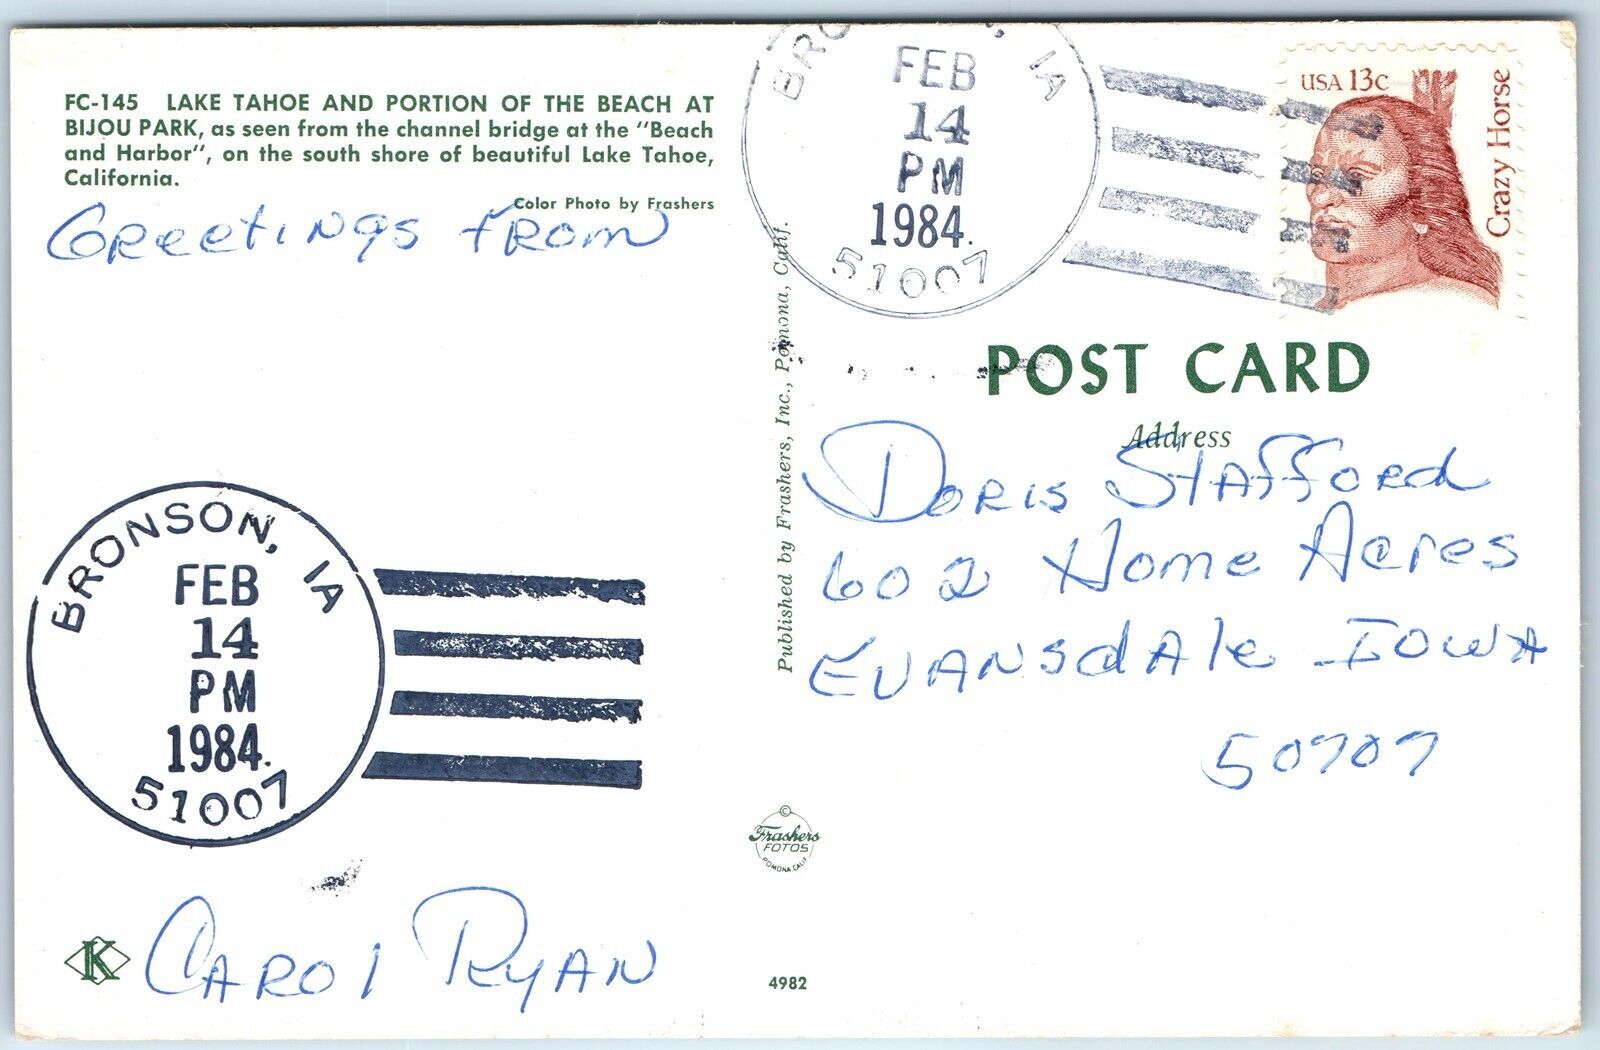 FC-145 LAKE TAHOE AND PORTION OF THE BEACH AT
BIJOU PARK, as seen from the channel bridge at the "Beach
and Harbor", on the south shore of beautiful Lake Tahoe,
California.
Color Photo by Frashers
Greetings from
BRONSON, IA
FEB
14
PM
1984.
51007
Carol Ryan
K
Published by Frashers, Inc., Pomona, Calif.
©
Frashers
FOTOS
POMONA, CALIF.
4982
BRONSON, IA
FEB
14
PM
1984.
51007
USA 13c
Crazy Horse
POST CARD
Address
Doris Stafford
602 Home Acres
Evansdale Iowa
50707